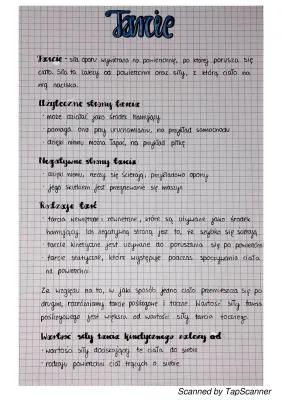 Tarcie
Tarcie - siła oporu wywierana na powierzchnię, po której porusza się
ciało. Siła ta zależy od powierzchni oraz siły, z którą ciało na
nią naciska.
Użyteczne strony tarcia
· może działać jako środek hamujący
· pomaga ona przy uruchamianiu, na przykład samochodu
· dzięki niemu można łapać, na przykład piłkę
Negatywne strony tarcia
· dzięki niemu, rzeczy się ścierają, przykładowo opony
· jego skutkiem jest przegrzewanie się maszyn
Rodzaje tarć
· tarcia wewnętrzne i zewnętrzne, które są używane jako środek
hamujący. Ich negatywną stroną jest to, że szybko się ścierają
· tarcie kinetyczne jest używane do poruszania się po powierzchni
· tarcie statyczne, które występuje podczas spoczywania ciała
na powierzchni
Ze względu na to, w jaki sposób jedno ciało przemieszcza się po
drugim, rozróżniamy tarcie poślizgowe i toczne. Wartość siły tarcia
poślizgowego jest większa od wartości siły tarcia tocznego.
Wartość siły tarcia kinetycznego zależy od
· wartości siły dociskającej te ciała do siebie
· rodzaju powierzchni ciał trących o siebie
Scanned by TapScanner